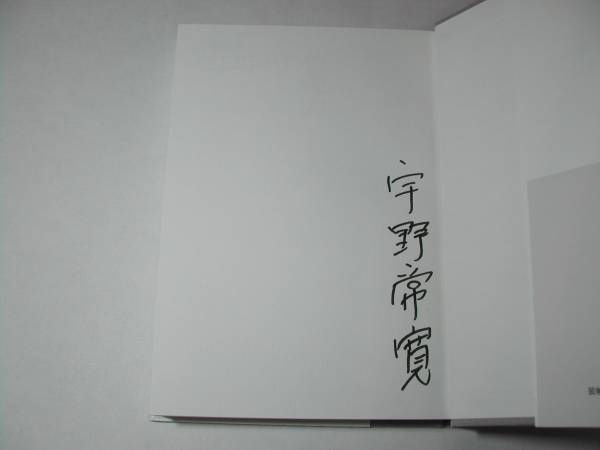 宇野常寛